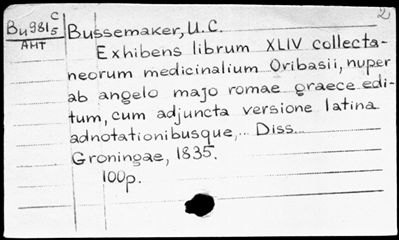 2
Bu981 C5 Bussemaker, U.C.
AHT Exhibens librum XLIV collecta-
neorum medicinalium Oribasii, nuper
ab angelo majo romae graece edi-
tum, cum adjuncta versione latina
adnotationibusque,... Diss.
Groningae, 1835.
100p.